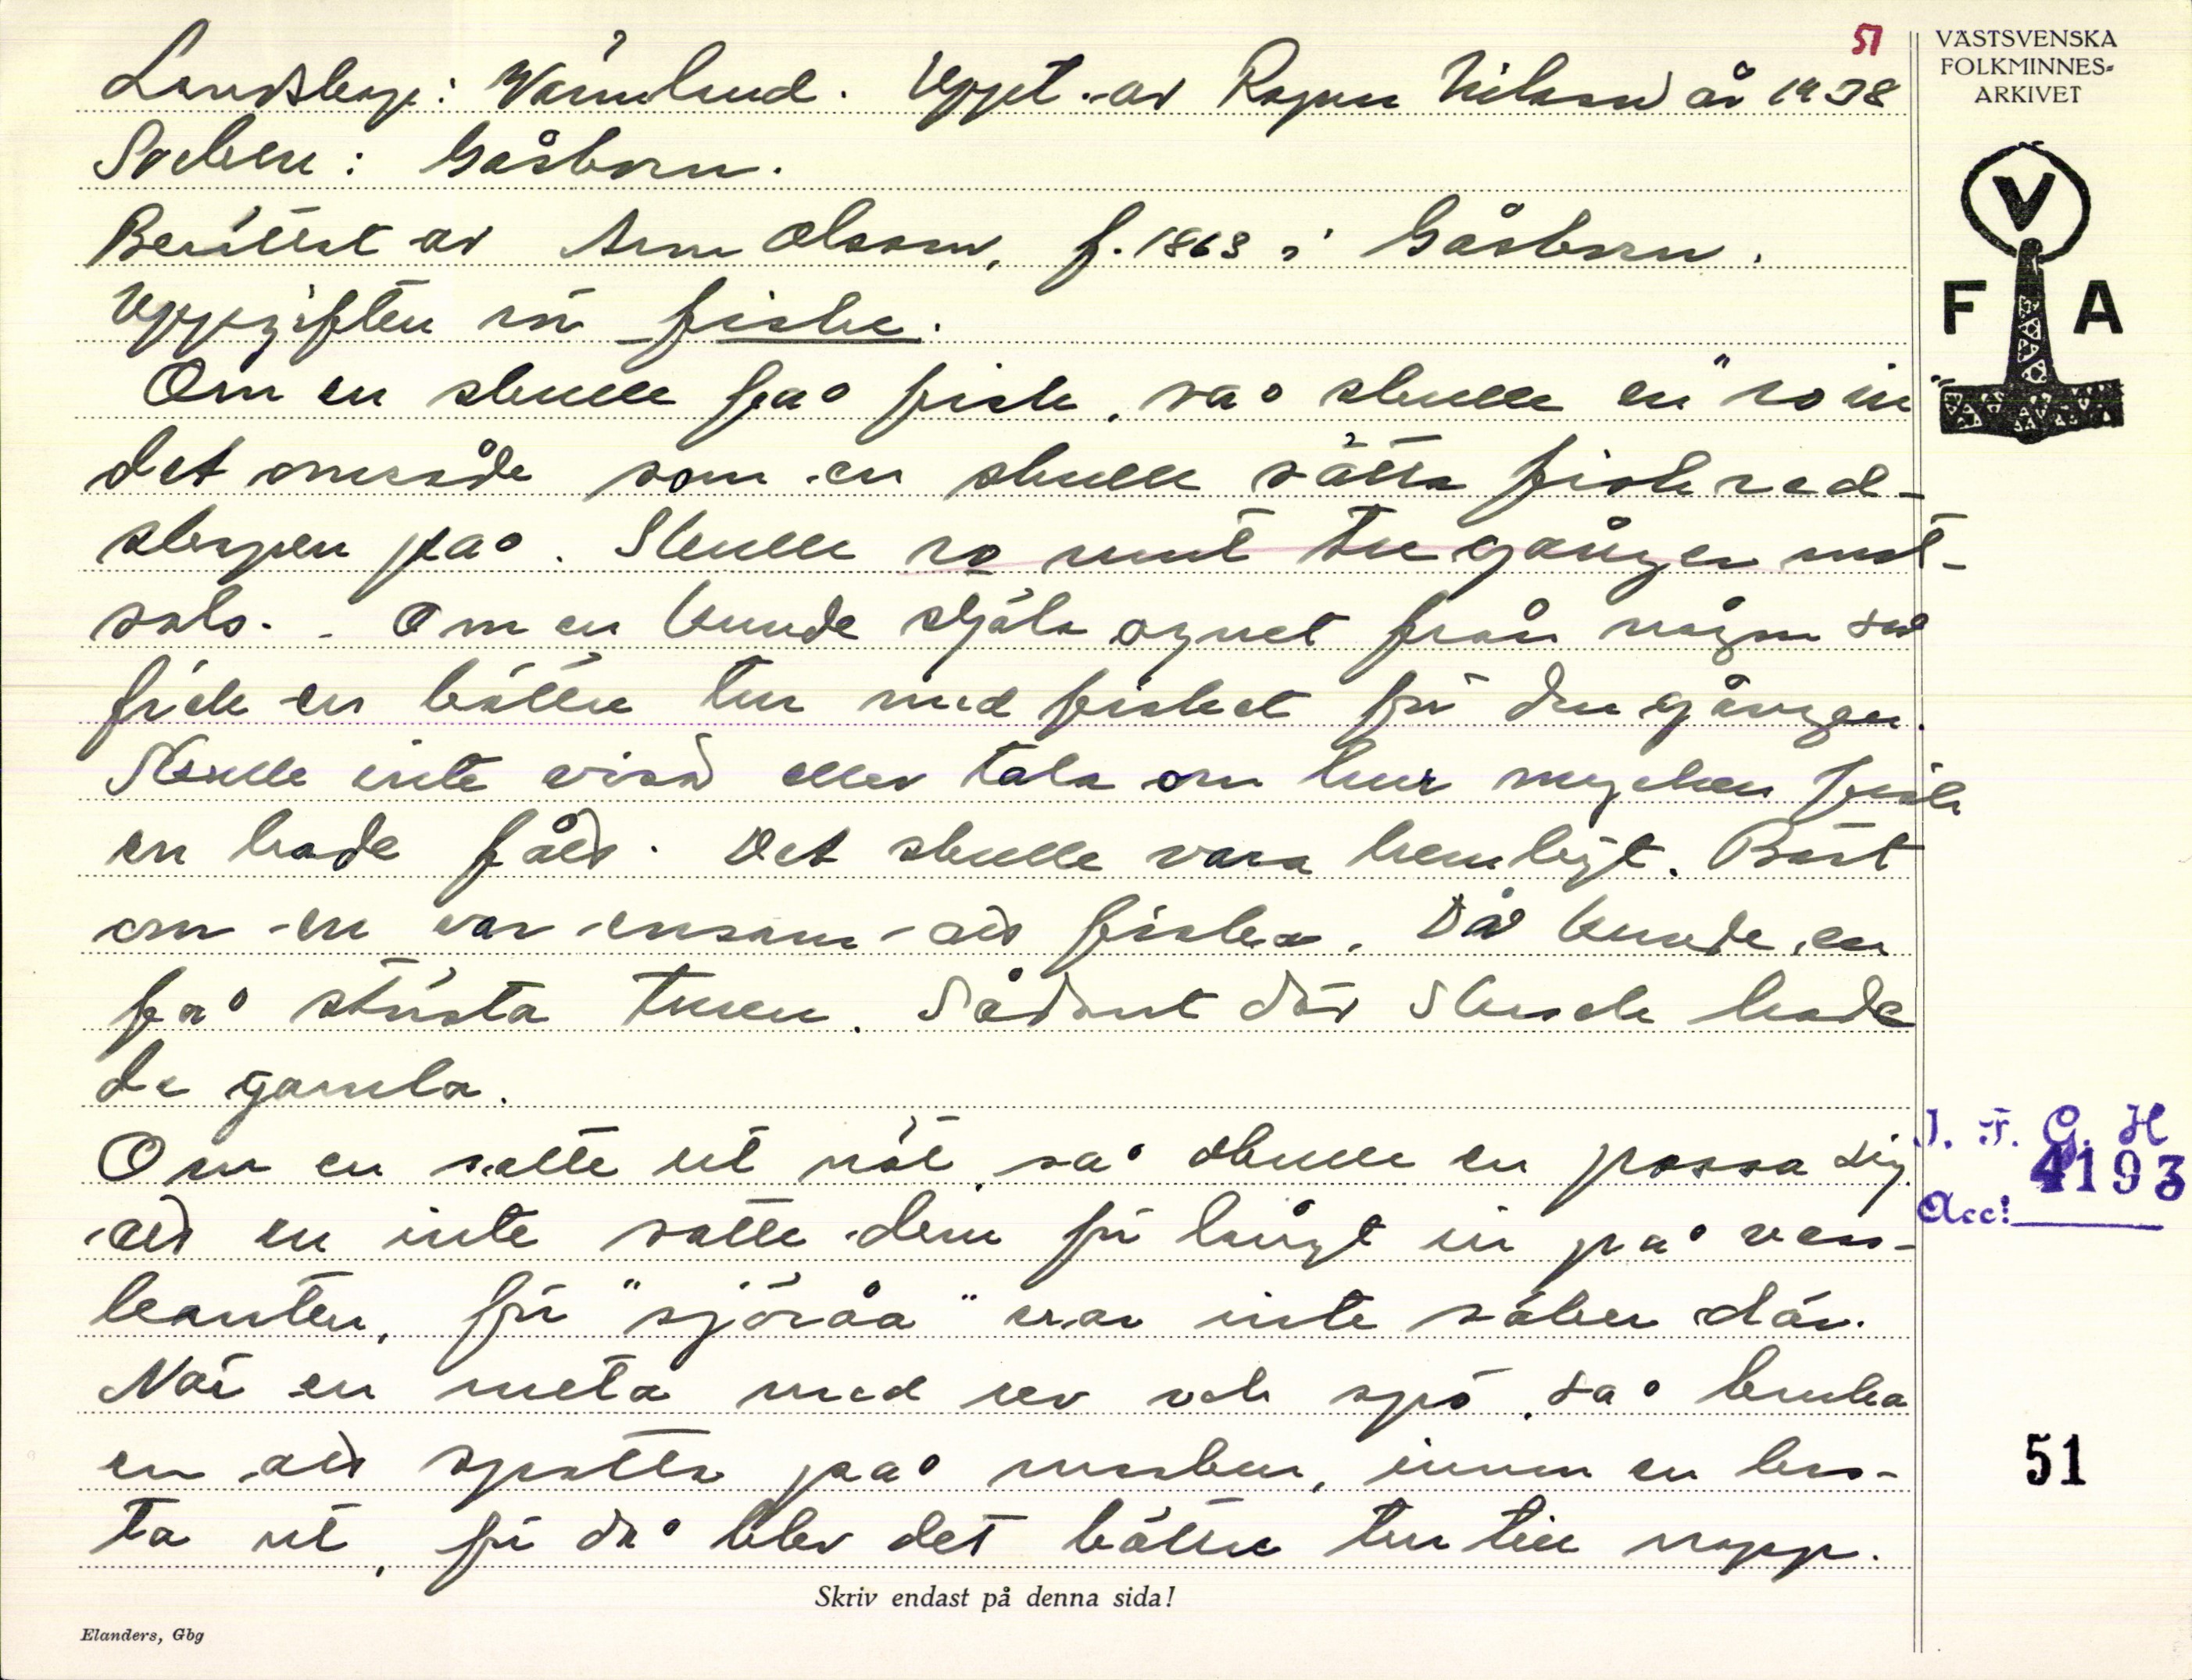 51
VÄSTSVENSKA
FOLKMINNES-
ARKIVET
Landskap: Värmland. Uppt. av Ragnar Nilsson år 1938
Socken: Gåsborn.
Berättat av Olsson, f. 1863 i Gåsborn.
Uppgiften rör fiske.
F V A
Om en skulle få fisk, så skulle en "ro in"
det område som en skulle sätta fiskred-
skapen på. Skulle ro runt tre gånger mot-
sols. - Om en kunde stjäla agnet från någon så
fick en bättre tur med fisket för den gången.
Skulle inte visa eller tala om hur mycken fisk
en hade fått. Det skulle vara hemligt. Bäst
om en var ensam att fiska. Då kunde en
få största turen. Sådant där skrock hade
de gamla.
Om en satte ut nät, så skulle en passa sig
att en inte satte dem för långt in på vass-
kanten, för "sjöråa" var inte säker där.
När en meta med rev och spö, så bruka
en att spotta på masken, innan en kas-
ta ut, för då blev det bättre tur till napp.
I. F. G. H
4193
Acc:
51
Skriv endast på denna sida!
Elanders, Gbg